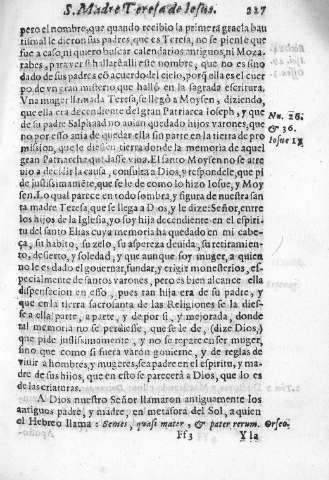 S. Madre Teresa de Iesus. 227
pero el nombre, que quando recibio la primera gracia bau
tismal le dieron sus padres, que es Teresa, no se piense que
fue a caso, ni quiero buscar calendarios antiguos, ni Moza
rabes, para ver si hallarè alli este nombre, que no es sino
dado de sus padres cõ acuerdo del cielo, porq̃ ella es el cuer
po de vn gran misterio que hallò en la sagrada escritura.
Vna muger llamada Teresa, se llegò a Moysen, diziendo,
que ella era decendiente del gran Patriarca Ioseph, y que
de su padre Salphaad no auian quedado hijos varones, que
no por esso auia de quedar ella sin parte en la tierra de pro
mission, que le diessen tierra donde la memoria de aquel
gran Patriarcha quedasse viua. El santo Moysen no se atre
uio a decidir la causa, consulta a Dios, y respondele, que pi
de justissimamẽte, que se le dè como lo hizo Iosue, y Moy
sen. Lo qual parece en todo sombra, y figura de nuestra san
ta madre Teresa, que se llega a Dios, y le dize: Señor, entre
los hijos de la Iglesia, yo soy hija decendiente en el espiri-
tu del santo Elias cuya memoria ha quedado en mi cabe-
ça, su habito, su zelo, su aspereza deuida, su retiramien-
to, desierto, y soledad, y que aunque soy muger, a quien
no le es dado el gouernar, fundar, y erigir monesterios, es-
pecialmente de santos varones, pero es bien alcance ella
dispensacion en esso, pues tan hija era de su padre, y
que en la tierra sacrosanta de las Religiones se la dies-
se a ella parte, a parte, y de por si, y mejorada, donde
tal memoria no se perdiesse, que se le dè, (dize Dios,)
que pide justissimamente, y no se repare en ser muger,
sino que como si fuera varon gouierne, y de reglas de
viuir a hombres, y mugeres, sea padre en el espiritu, y ma-
dre de sus hijos, que en esto se parecerà a Dios, que lo es
de las criaturas.
A Dios nuestro Señor llamaron antiguamente los
antiguos padre, y madre, en metafora del Sol, a quien
el Hebreo llama: Semes, quasi mater, & pater rerum. Orfeo.
Ff 3 Y la
Nu. 26.
& 36.
Iosue 17